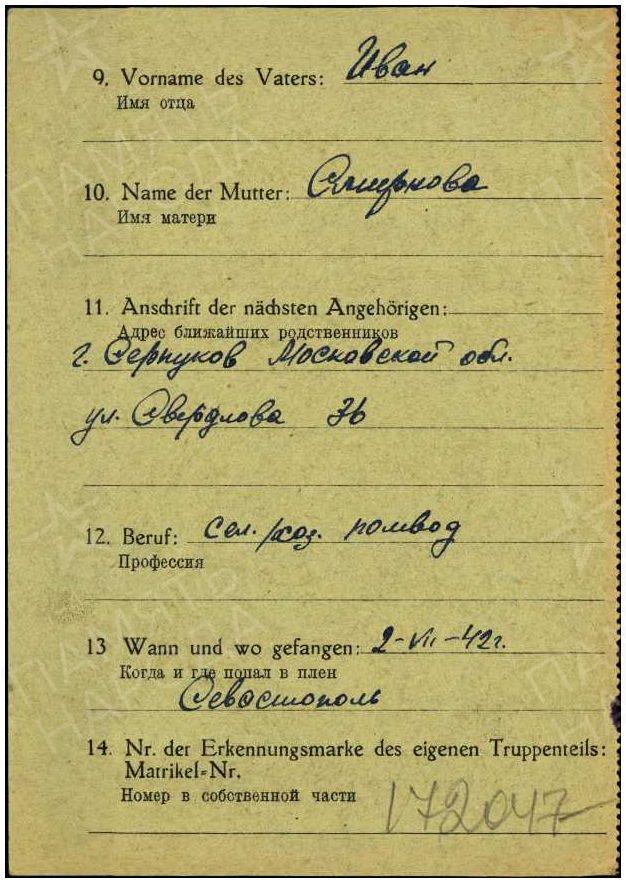 9. Vorname des Vaters: Иван
Имя отца
10. Name der Mutter: Смирнова
Имя матери
11. Anschrift der nächsten Angehörigen:
Адрес ближайших родственников
г. Серпухов Московской обл.
ул. Свердлова 36
12. Beruf: сел./хоз.
Профессия
13 Wann und wo gefangen: 2-VII-42г.
Когда и где попал в плен
Севастополь
14. Nr. der Erkennungsmarke des eigenen Truppenteils:
Matrikel=Nr.
Номер в собственной части
172047